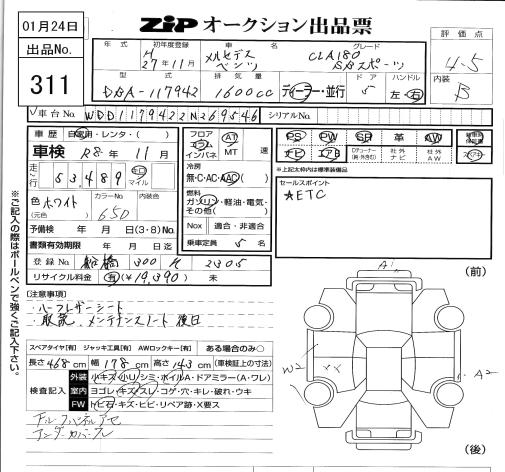 01月24日
ZIP オークション出品票
出品No.
311
年式
初年度登録
H 27年11月
車名
メルセデス
ベンツ
グレード
CLA180
SBスポーツ
評価点
4.5
内装
B
型式
DBA-117942
排気量
1600cc
ディーラー・並行
ドア
5
ハンドル
左・右
車台No.
WDD1179422N269546
シリアルNo.
車歴 自家用・レンタ・( )
車検 R8年 11月
走行 53,489 キロ マイル
色 ホワイト (元色)
カラーNo. 650
内装色
予備検 年 月 日(3・8)No.
書類有効期限 年 月 日迄
登録No. 船橋 300 H 2305
リサイクル料金 有(¥19,390) 未
フロア エコラム インパネ
AT
MT 速
冷房
無・C・AC・AAC( )
燃料
ガソリン・軽油・電気・
その他( )
Nox 適合・非適合
乗車定員 5 名
PS PW SR 革 AW
ナビ エアB TVチューナー 社外ナビ 社外AW
※上記太枠内は標準装備品
セールスポイント
★ETC
[注意事項]
・ハーフレザーシート
・取説、メンテナンスノート後日
スペアタイヤ[有] ジャッキ工具[有] AWロックキー[有] ある場合のみ○
長さ 468 cm 幅 178 cm 高さ 143 cm (車検証上の寸法)
検査記入
外装 小キズ・小U・シミ・ホイルA・ドアミラー(A・ワレ)
室内 ヨゴレ・キズ・スレ・コゲ・穴・キレ・破れ・ウキ
FW トビ石・キズ・ヒビ・リペア跡・X要ス
アンダーカバーズレ
※ご記入の際はボールペンで強くご記入下さい。
(前)
A1
W2
A2
(後)